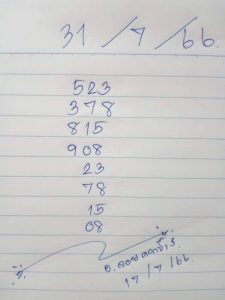 31/7/66.
523
378
815
908
23
78
15
08
17/7/66.